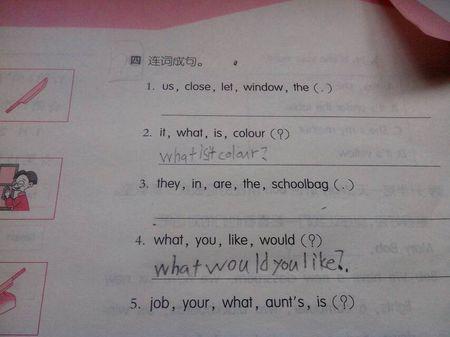 四 连词成句。
1. us, close, let, window, the (.)
2. it, what, is, colour (?)
what is colour?
3. they, in, are, the, schoolbag (.)
4. what, you, like, would (?)
what would you like?.
5. job, your, what, aunt's, is (?)